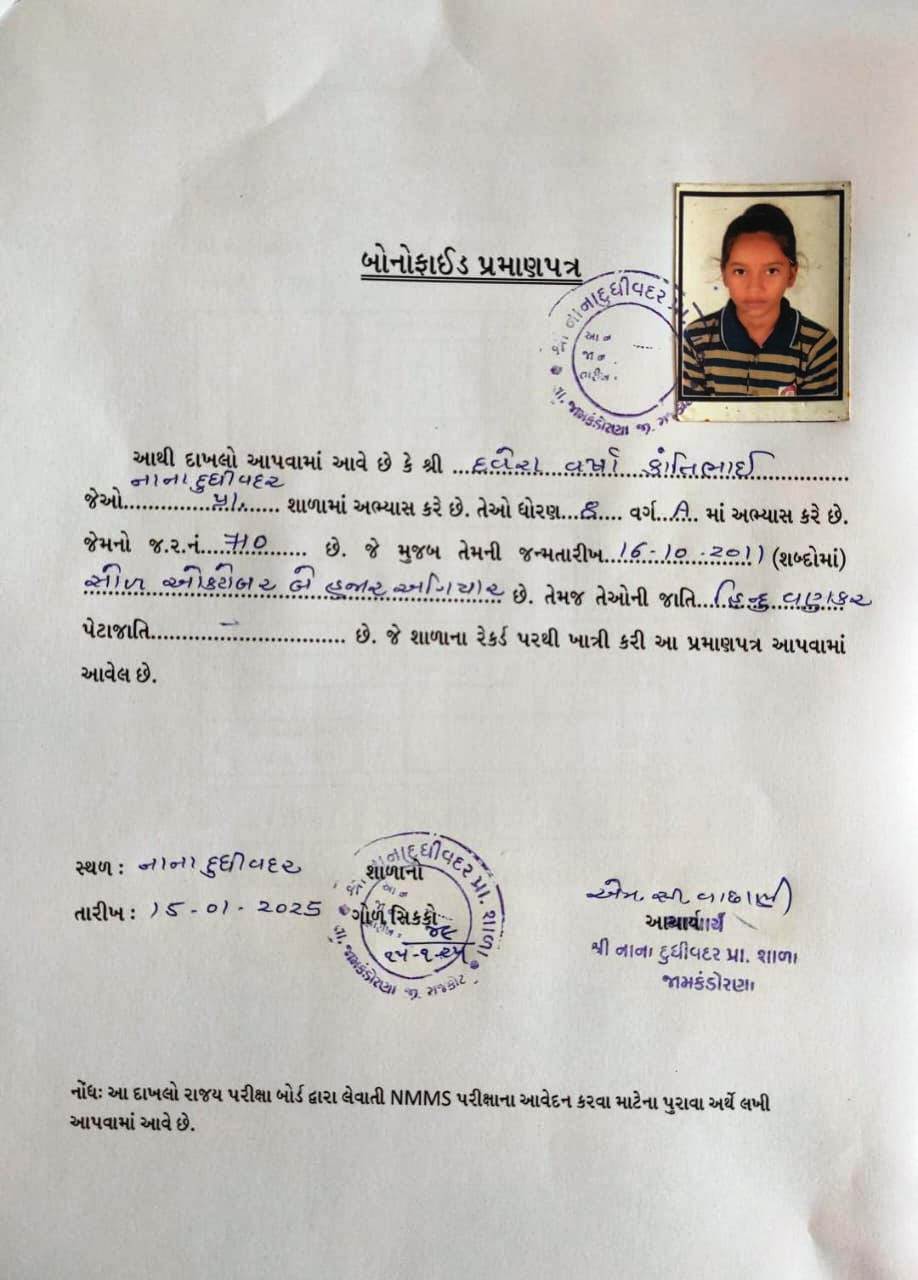 બોનોફાઈડ પ્રમાણપત્ર
નાનાદુધીવદર પ્રા.
તા. જામકંડોરણા જી. રાજકોટ
આથી દાખલો આપવામાં આવે છે કે શ્રી ...દવેરા વર્ષા કાંતિભાઈ...
નાના દુધીવદર
જેઓ...પ્રા.... શાળામાં અભ્યાસ કરે છે. તેઓ ધોરણ...8.... વર્ગ...A... માં અભ્યાસ કરે છે.
જેમનો જ.ર.નં...710... છે. જે મુજબ તેમની જન્મતારીખ...16-10-2011 (શબ્દોમાં)
સોળ ઓક્ટોબર બે હજાર અગિયાર છે. તેમજ તેઓની જાતિ...હિન્દુ વણકર
પેટાજાતિ...-... છે. જે શાળાના રેકર્ડ પરથી ખાત્રી કરી આ પ્રમાણપત્ર આપવામાં
આવેલ છે.
સ્થળ : નાના દુધીવદર
તારીખ : 15-01-2025
નાનાદુધીવદર પ્રા. શાળા
શાળાનો
ગોળ સિક્કો
૧૫-૧-૨૫
તા. જામકંડોરણા જી. રાજકોટ
એમ. સી. વાછાણી
આચાર્ય
શ્રી નાના દુધીવદર પ્રા. શાળા
જામકંડોરણા
નોંધઃ આ દાખલો રાજય પરીક્ષા બોર્ડ દ્વારા લેવાતી NMMS પરીક્ષાના આવેદન કરવા માટેના પુરાવા અર્થે લખી
આપવામાં આવે છે.